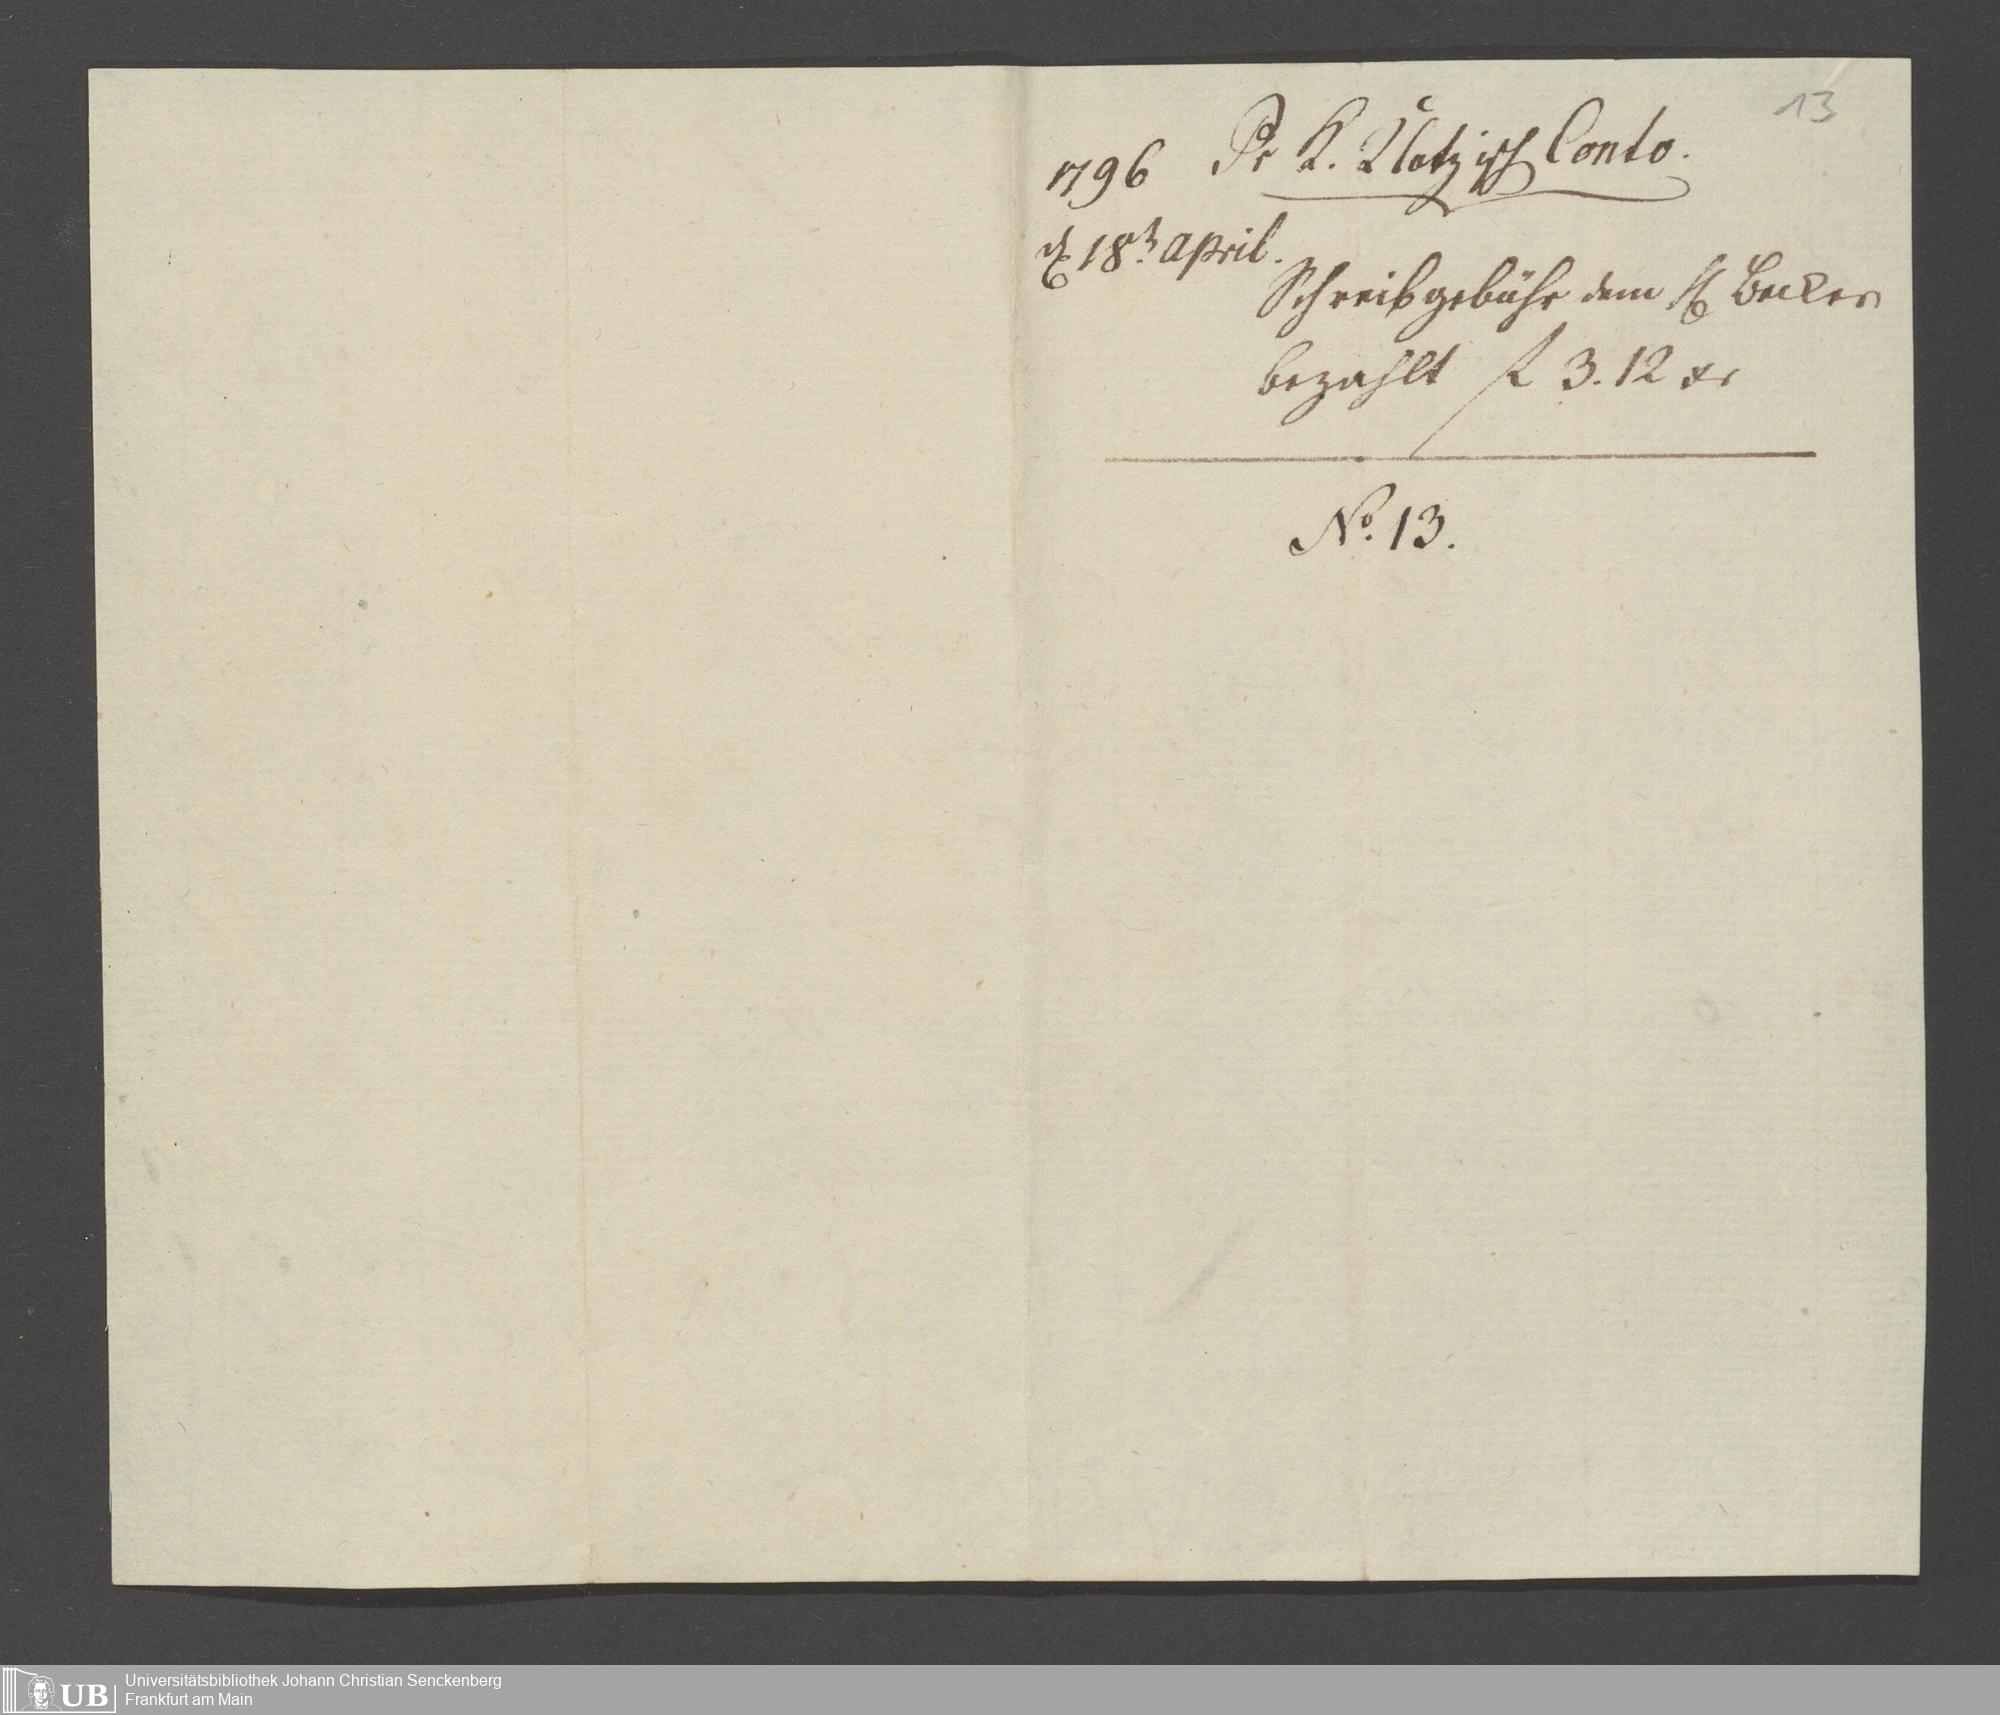 13
1796 Pr K. Klotzisch Conto.
d 18t April.
Schreibgebühr dem H Becker
bezahlt f 3.12 xr
No. 13.
UB
Universitätsbibliothek Johann Christian Senckenberg
Frankfurt am Main